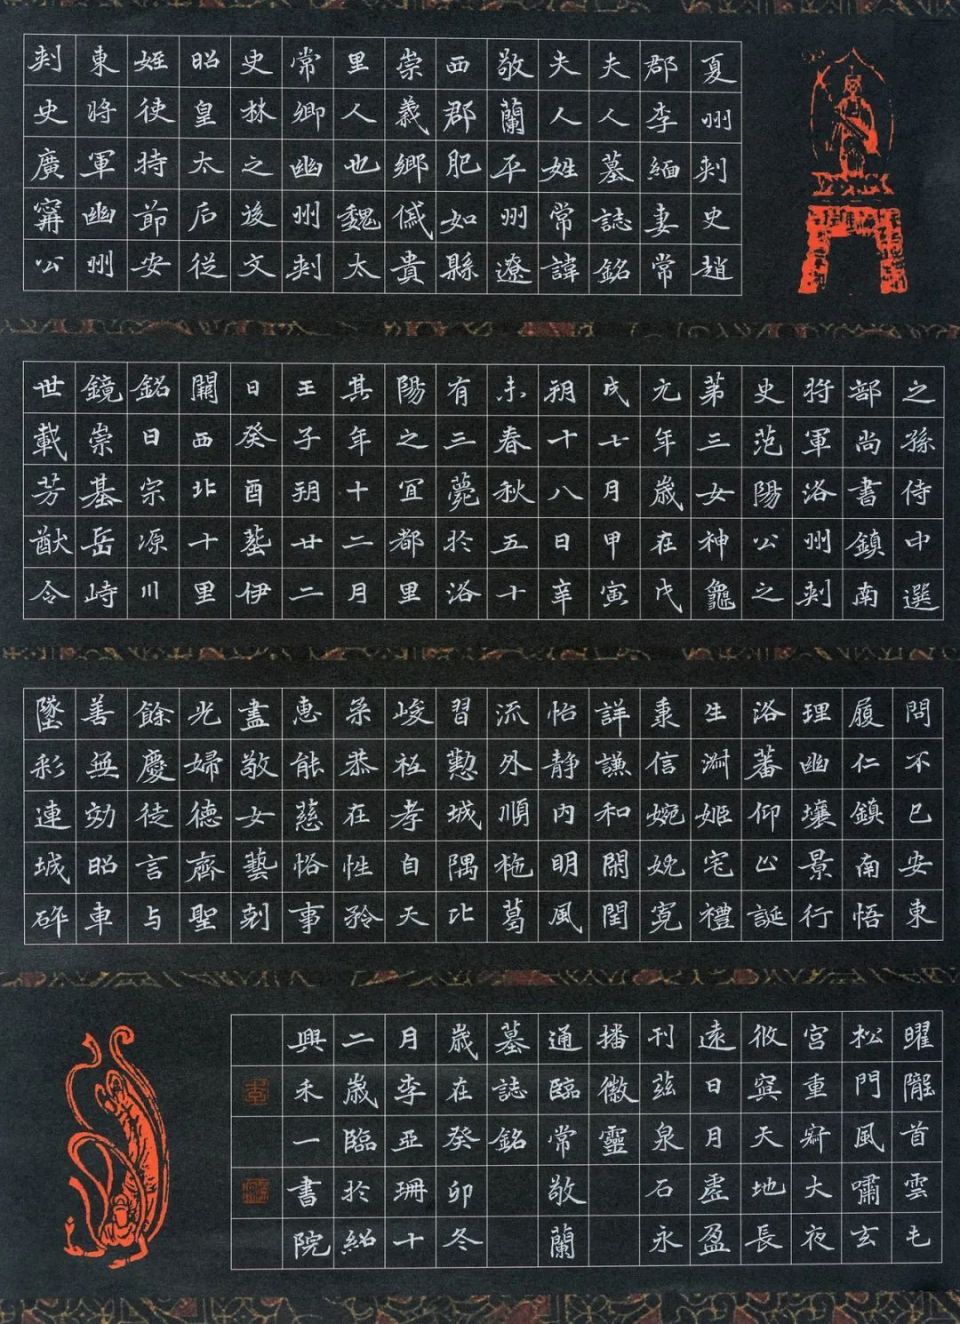 夏州刾史趙
郡李緬妻常
夫人墓誌銘
夫人姓常諱
敬蘭平州遼
西郡肥如縣
崇義鄉傶貴
里人也魏太
常卿幽州刾
史林之後文
昭皇太后從
姪使持節安
東將軍幽州
刾史廣寧公
之孫侍中選
部尚書鎮南
将軍洛州刾
史范陽公之
第三女神龜
元年歲在戊
戌七月甲寅
朔十八日辛
未春秋五十
有三薨於洛
陽之宜都里
其年十二月
壬子朔廿二
日癸酉葬伊
闕西北十里
銘曰宗源川
鏡崇基岳峙
世載芳猷令
問不已安東
履仁鎮南悟
理幽壤景行
洛蕃仰止誕
生淵姬宅禮
秉信婉娩寬
詳謙和閑閨
怡静内明風
流外順柂葛
習懃城隅比
峻祗孝自天
柔恭在性矜
惠能慈恪事
盡敬女藝剋
光婦德齊聖
餘慶徒言与
善無効昭車
墜彩連城碎
曜隴首雲乇
松門風嘯玄
宫重穸大夜
攸冥天地長
遠日月虛盈
刊兹泉石永
播徽靈
通臨常敬蘭
墓誌銘
歲在癸卯冬
月李亞珊十
二歲臨於紹
興禾一書院